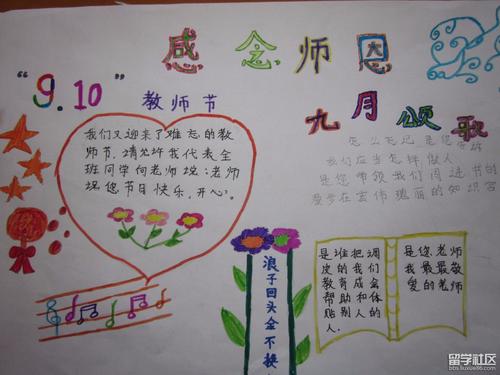 感念师恩
“9.10”
教师节
九月颂歌
我们又迎来了难忘的教
师节,请允许我代表全
班同学向老师说:老师
祝您节日快乐,开心。
怎么忘记是您
我们应当怎样做人
是您带领我们闯进书的
遨游在宏伟瑰丽的知识宫
浪子回头金不换
是谁把调
皮的我们
教育成会
帮助和体
贴别人的
人.
是您,老师
我最最敬
爱的老师
留学社区
bbs.liuxue86.com